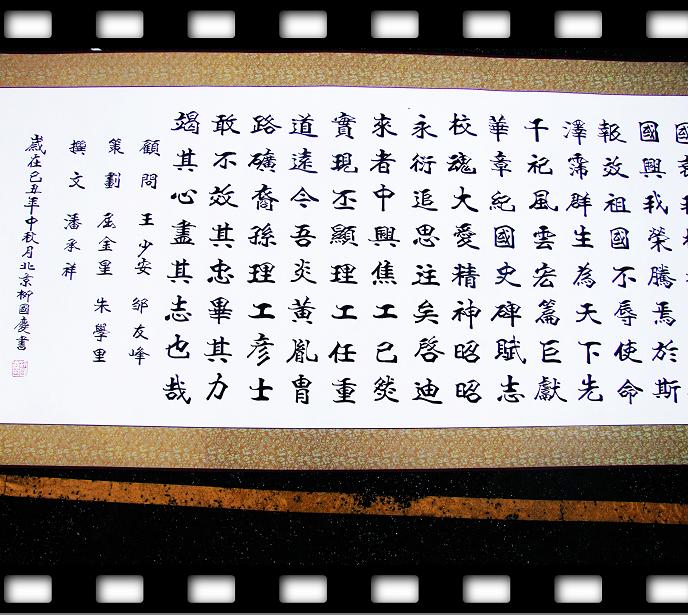 國興我榮騰焉於斯
報效祖國不辱使命
澤霈群生為天下先
千祀風雲宏篇巨獻
華章紀國史碑賦志
校魂大愛精神昭昭
永衍追思注矣啓迪
來者中興焦工已然
實現丕顯理工任重
道遠今吾炎黃胤胄
路礦裔孫理工彥士
敢不效其忠畢其力
竭其心盡其志也哉
顧問 王少安 鄒友峰
策劃 屈金星 朱學里
撰文 潘承祥
歲在己丑年中秋月北京柳國慶書